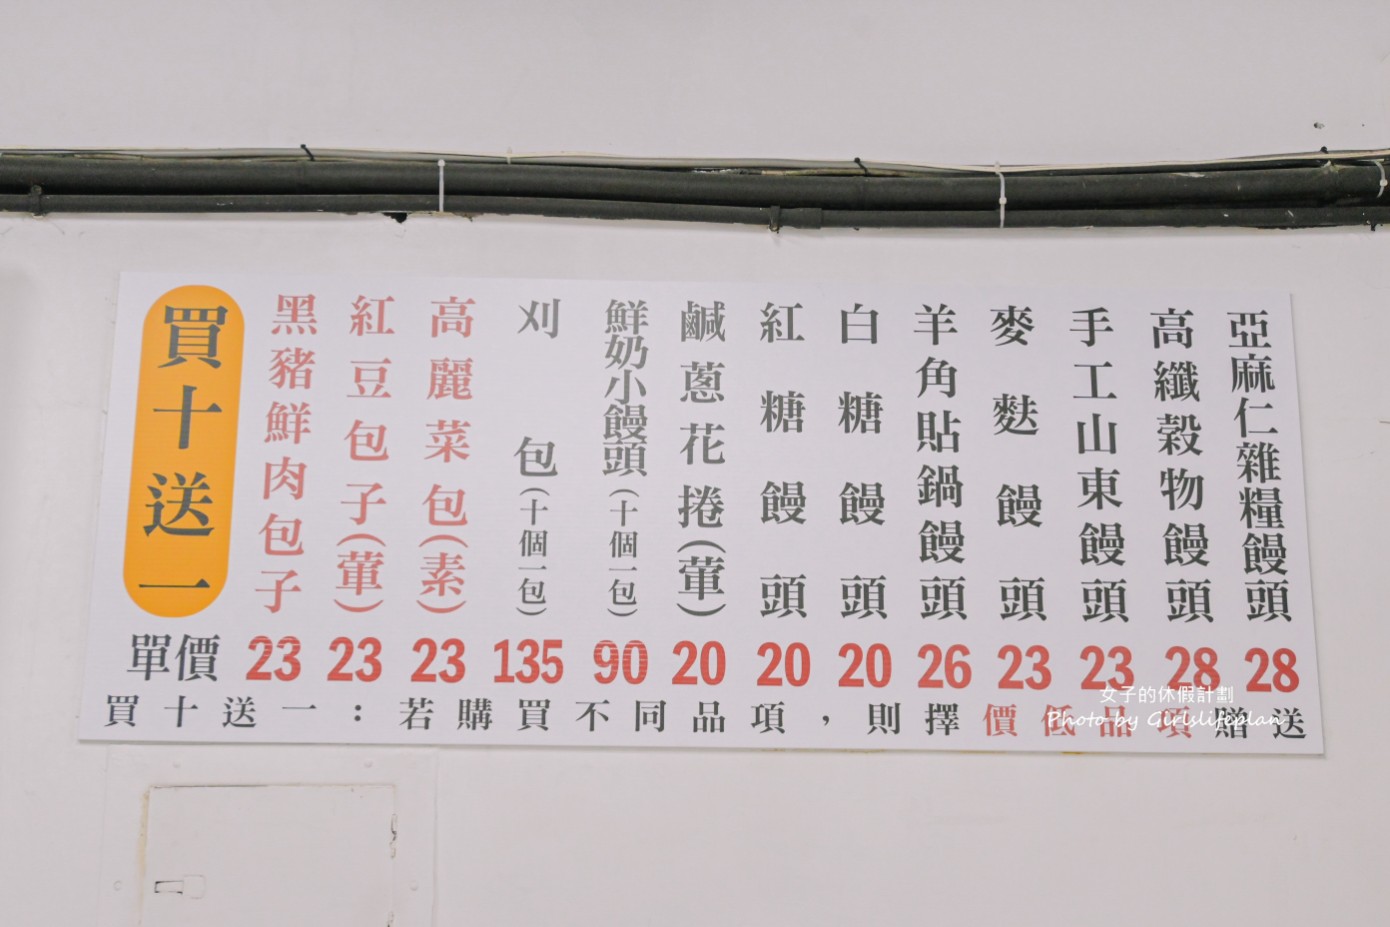 買十送一
單價
黑豬鮮肉包子 23
紅豆包子(葷) 23
高麗菜包(素) 23
刈包(十個一包) 135
鮮奶小饅頭(十個一包) 90
鹹蔥花捲(葷) 20
紅糖饅頭 20
白糖饅頭 20
羊角貼鍋饅頭 26
麥麩饅頭 23
手工山東饅頭 23
高纖穀物饅頭 28
亞麻仁雜糧饅頭 28
買十送一：若購買不同品項，則擇價低品項贈送
女子的休假計劃
Photo by Girlslifeplan